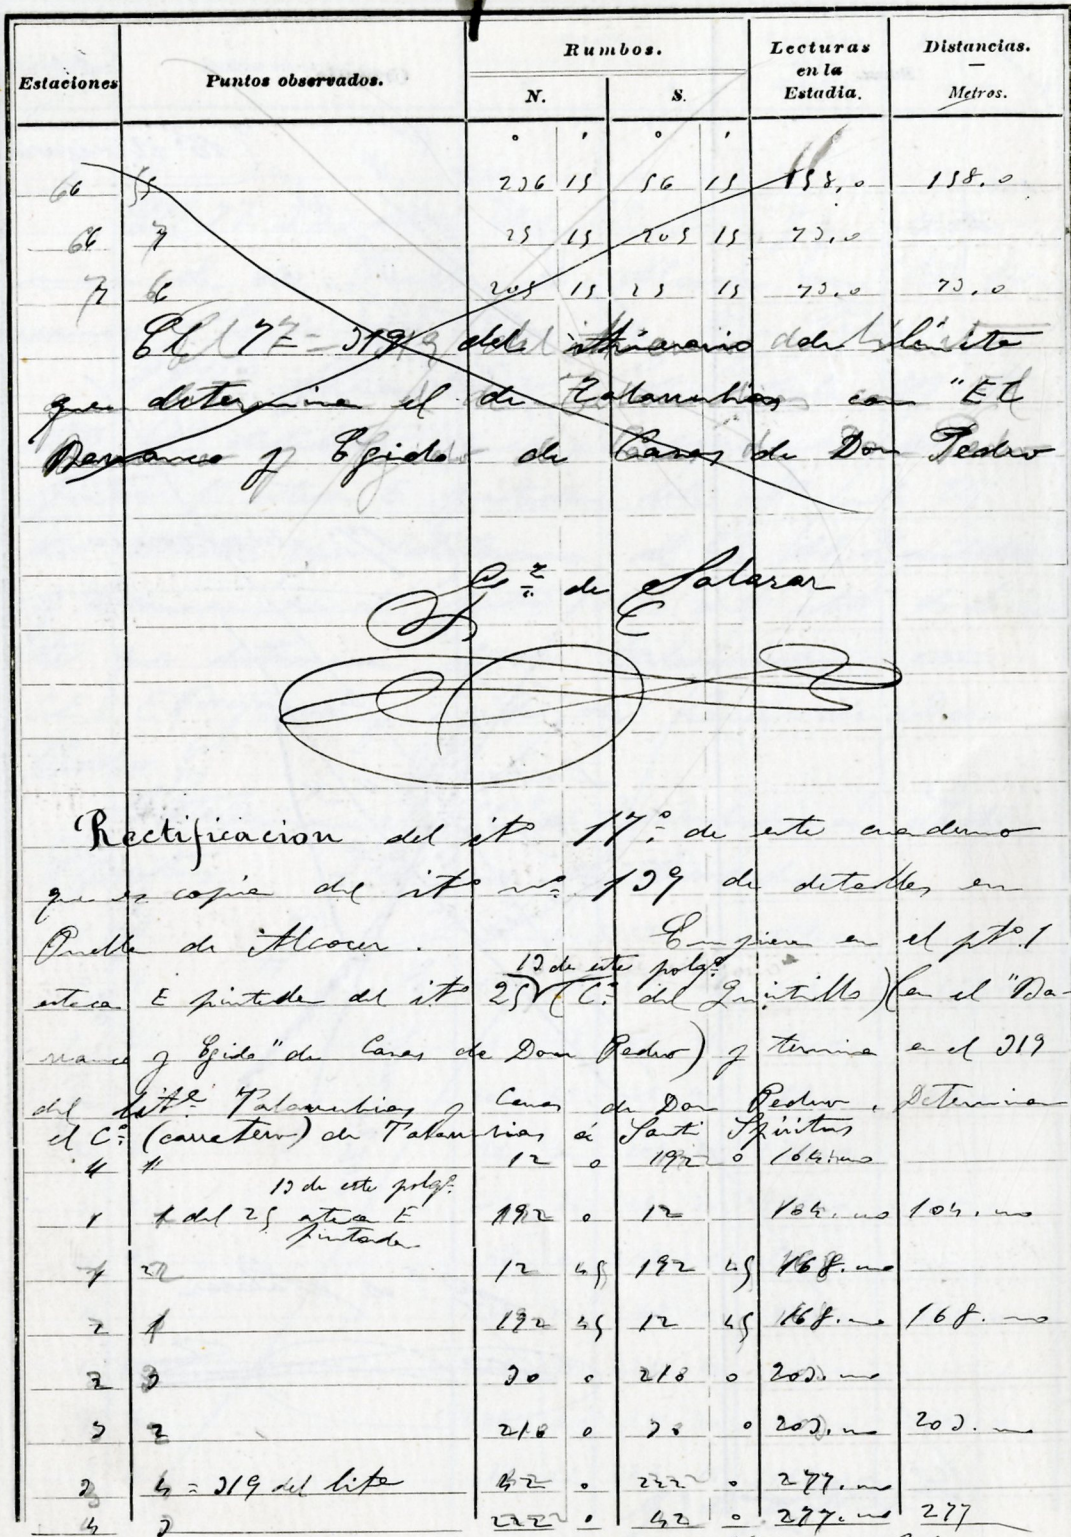 Estaciones Puntos observados. Rumbos. Lecturas en la Estadia. Distancias. Metros.
N. S.
° ' ° '
66 55 236 15 56 15 158,0 158.0
66 7 25 15 205 15 73,0
7 66 205 15 25 15 73,0 73,0
El 7 = 319 del itinerario del límite
que determina el de Talarrubias con "El
Barranco y Egido de Casas de Don Pedro
Gz. de Salazar
Rectificacion del itº 17º de este cuaderno
que es copia del itº nº 139 de detalles en
Puebla de Alcocer. Empieza en el ptº 1
13 de este polgº
estaca E pintada del itº 25 (Cº del Quintillo) (en el "Ba-
rranco y Egido" de Casas de Don Pedro) y termina en el 319
del litº Talarrubias y Casas de Don Pedro. Determina
el Cº (carretero) de Talarrubias á Santi Spíritus
12 0 192 0 164.
13 de este polgº
1 1 del 25 estaca E pintada 192 0 12 164. 104.
1 2 12 45 192 45 168.
2 1 192 45 12 45 168. 168.
2 3 30 0 210 0 203.
3 2 210 0 30 0 203. 203.
3 4 = 319 del lite 42 0 222 0 277.
4 3 222 0 42 0 277. 277